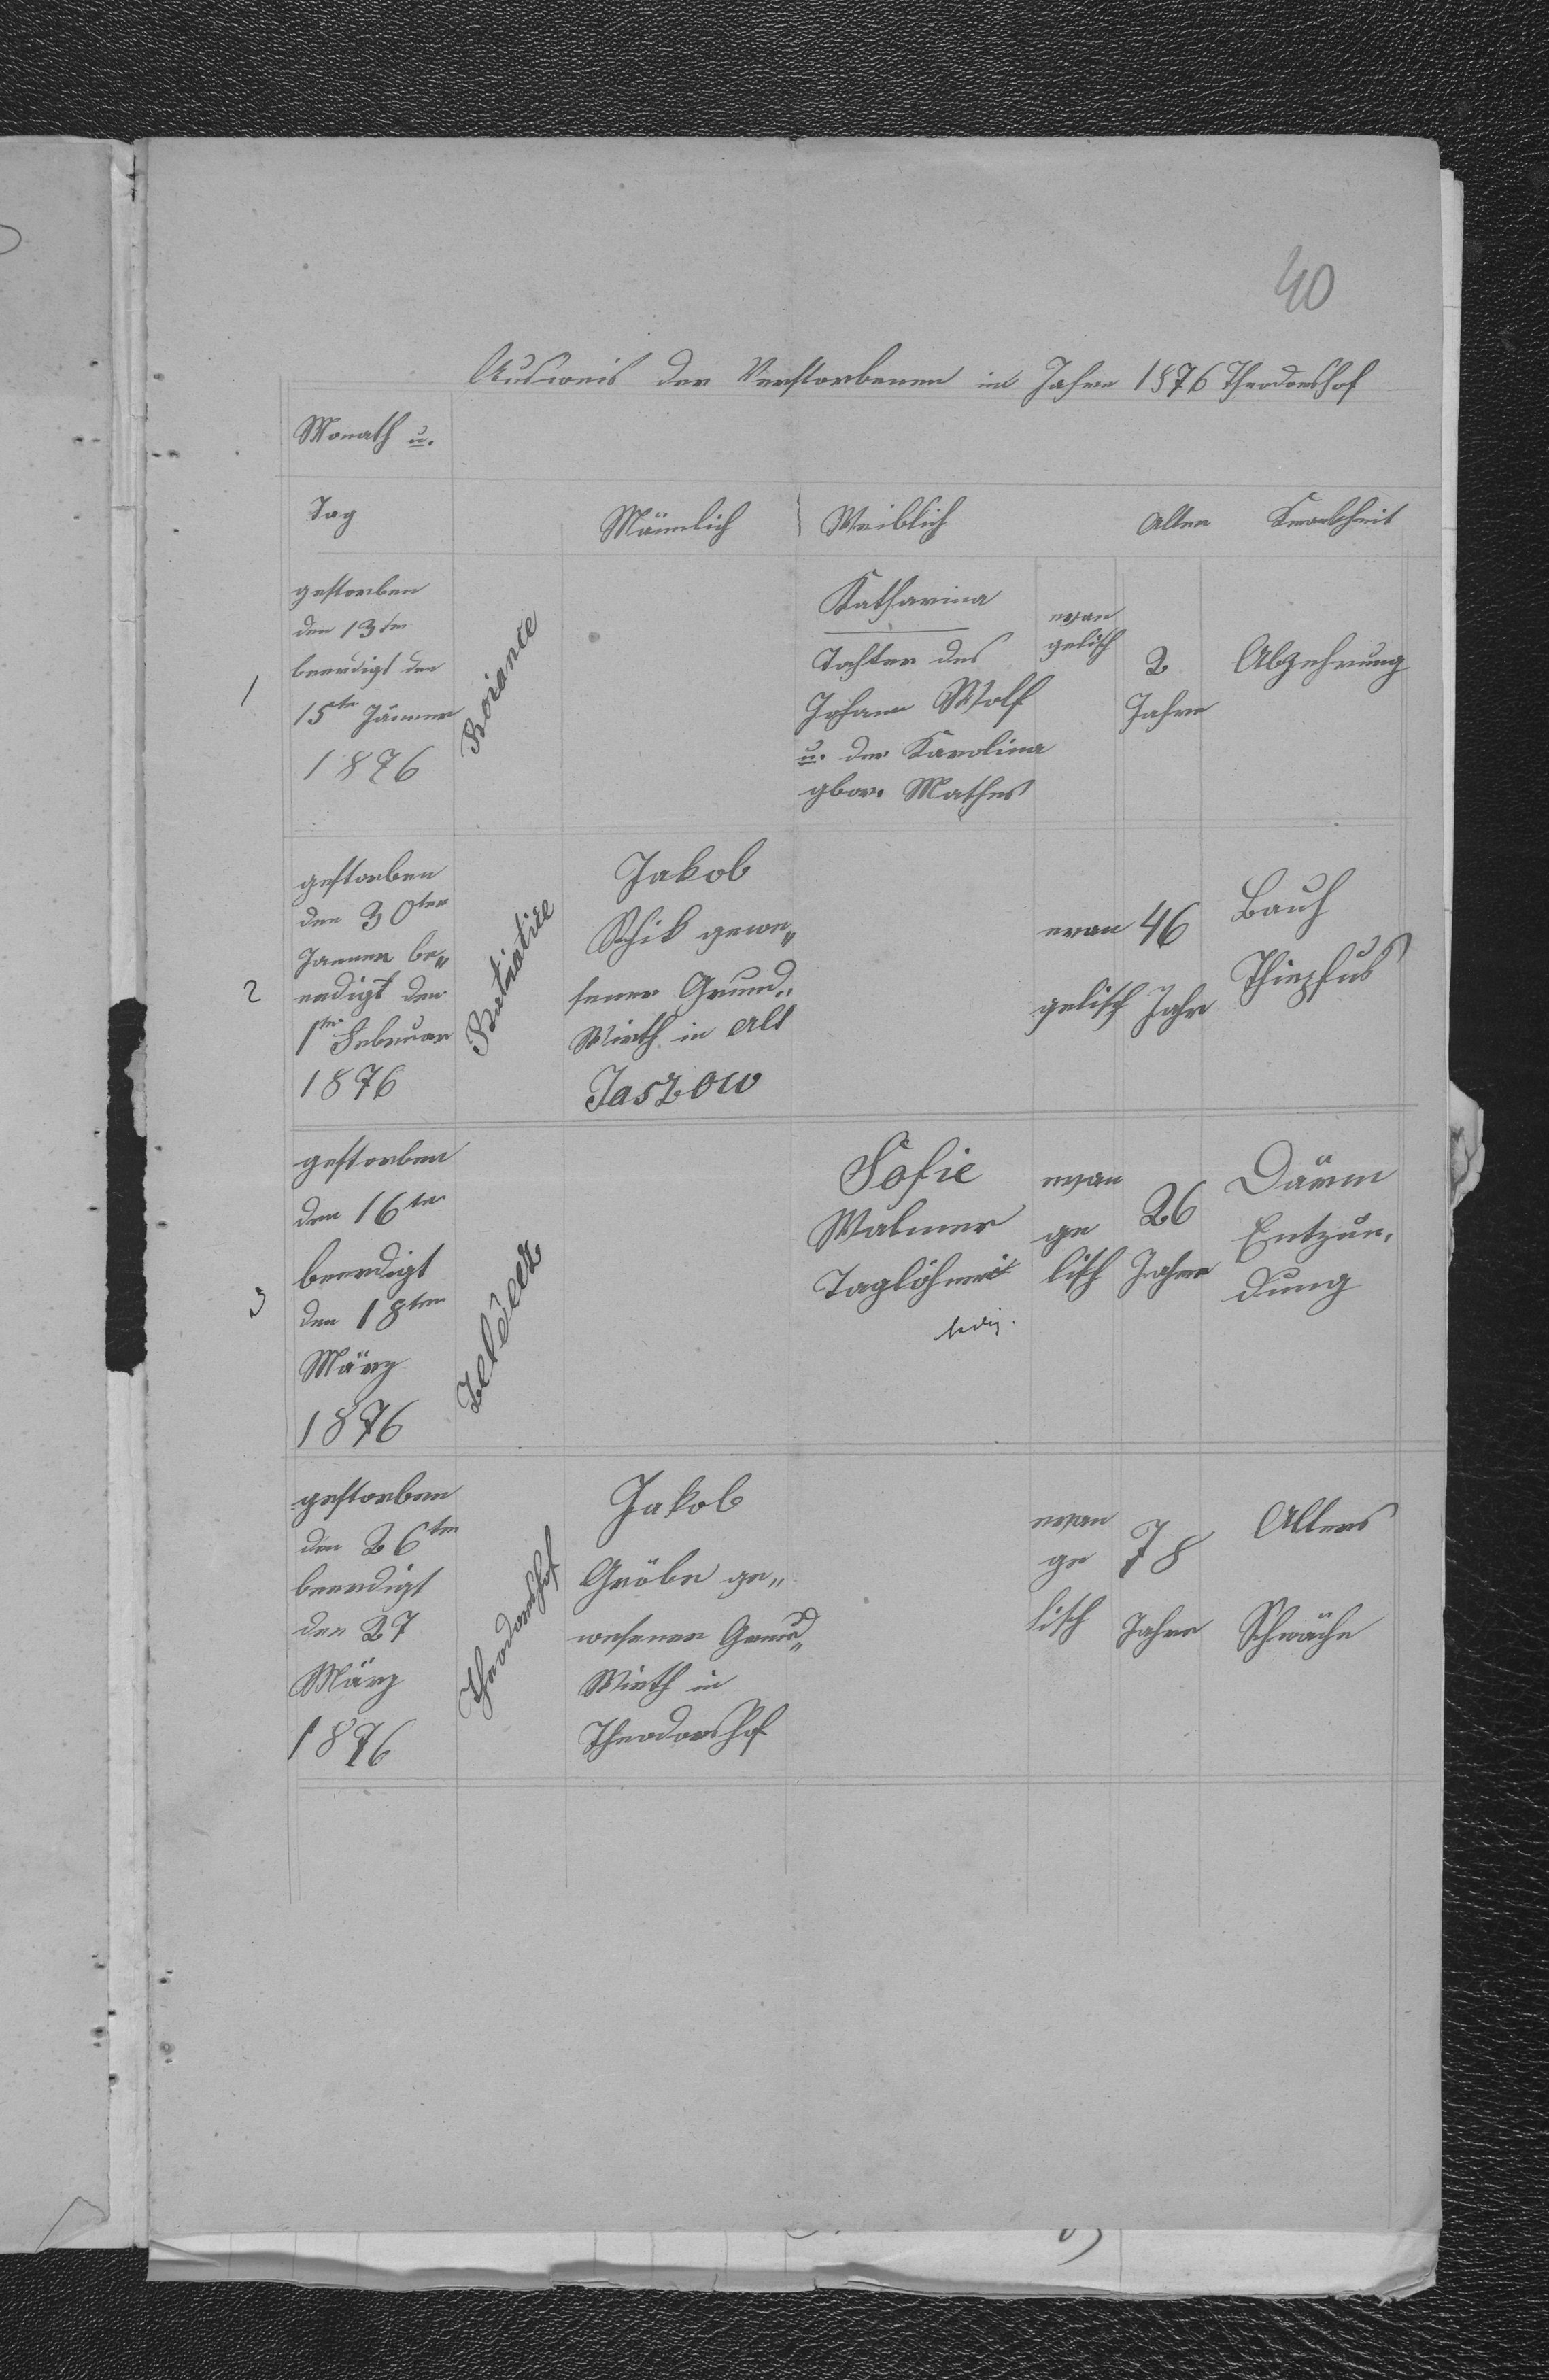 40
Ausweis der Verstorbenen im Jahre 1876 Theodorshof
Monath u.
Tag
Männlich
Weiblich
Alter
Krankheit
1
gestorben
den 13ten
beerdigt den
15ten Jänner
1876
Katharina
Tochter des
Johann Wolf
u. der Karolina
gbor. Mathes
evan
gelisch
2
Jahre
Abzehrung
2
gestorben
den 30ten
Janner be„
erdigt den
1ten Februar
1876
Jakob
Schik gewe„
sener Grund„
Wirth in Alt
Jaszow
evan
gelisch
46
Jahr
Bauch
3
gestorben
den 16ten
beerdigt
den 18ten
März
1876
Sofie
Walmer
Taglöhnerin
ledig.
evan
ge
lisch
26
Jahre
Därm
Entzün„
dung
gestorben
den 26ten
beerdigt
den 27
März
1876
Theodorshof
Jakob
Gröbe ge„
wesener Grund„
Wirth in
Theodorshof
evan
ge
lisch
78
Jahre
Alters
Schwäche